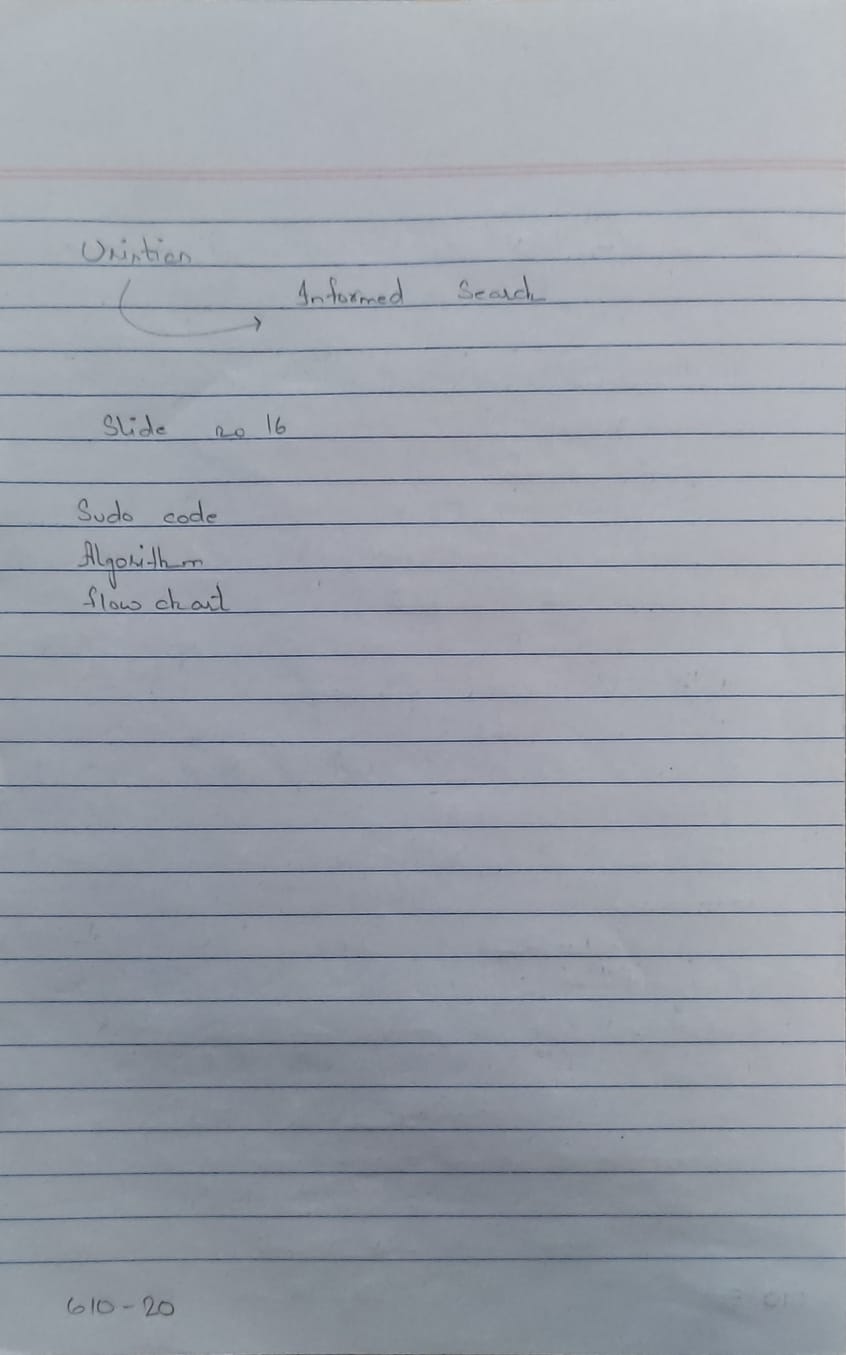 Informed Search
Slide no 16
Sudo code
Algorithm
flow chart
610-20